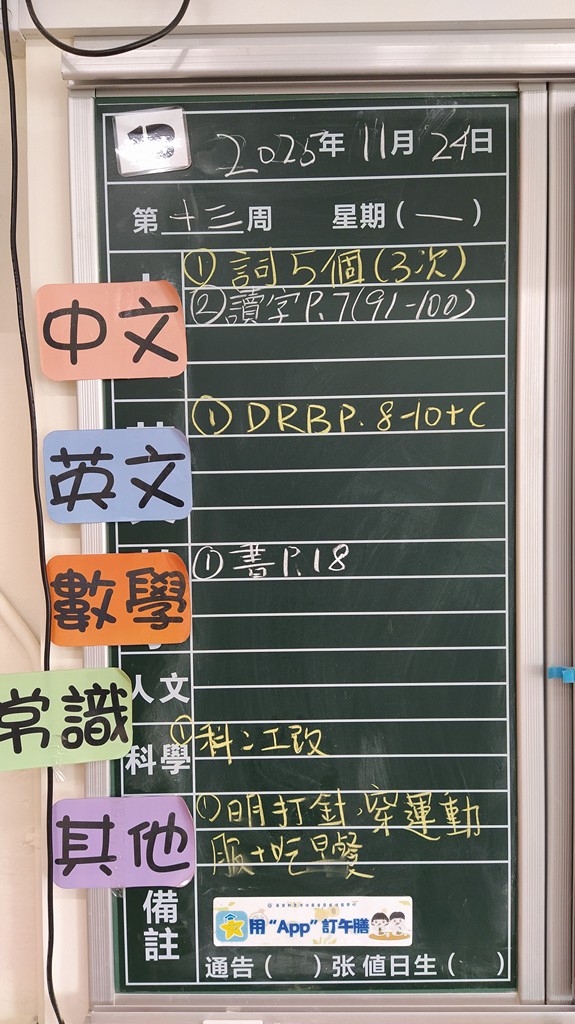 2025年 11月 24日
第 十三 周 星期 ( 一 )
中文
① 詞5個(3次)
② 讀字P.7(91-100)
英文
① DRB P.8-10+C
數學
① 書P.18
人文
常識
科學
① 科:工改
其他
① 明打針,穿運動
服+吃早餐
備註
用 “App” 訂午膳
通告 ( ) 张 值日生 ( )